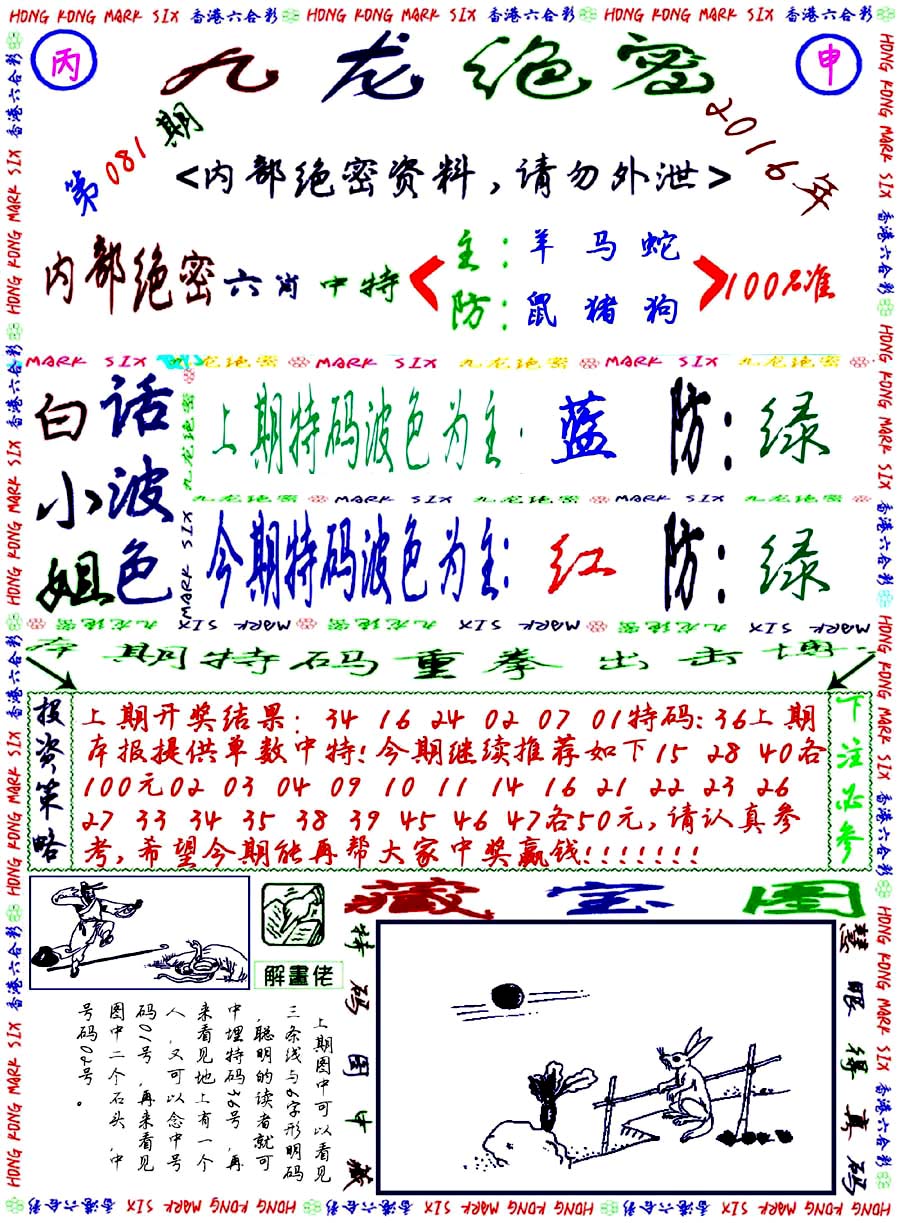 HONG KONG MARK SIX 香港六合彩 HONG KONG MARK SIX 香港六合彩 HONG KONG MARK SIX 香港六合彩
丙 九龙绝密 申
第081期 2016年
<内部绝密资料,请勿外泄>
内部绝密六肖中特
主:羊马蛇
防:鼠猪狗
100%准
MARK SIX 九龙绝密 MARK SIX 九龙绝密 MARK SIX 九龙绝密
白小姐
话波色
上期特码波色为主:蓝 防:绿
九龙绝密 MARK SIX 九龙绝密 MARK SIX 九龙绝密
今期特码波色为主:红 防:绿
本期特码重拳出击博
投资策略
上期开奖结果: 34 16 24 02 07 01特码:36上期
本报提供单数中特!今期继续推荐如下15 28 40各
100元02 03 04 09 10 11 14 16 21 22 23 26
27 33 34 35 38 39 45 46 47各50元,请认真参
考,希望今期能再帮大家中奖赢钱!!!!!!!
下注必参
藏宝图
解畫佬
上期图中可以看见
三条线与6字形明码
,聪明的读者就可
中埋特码36号,再
来看见地上有一个
人,又可以念中号
码01号,再来看见
图中二个石头,中
号码02号。
特码图中藏
慧眼得真码
HONG KONG MARK SIX 香港六合彩 HONG KONG MARK SIX 香港六合彩 HONG KONG MARK SIX 香港六合彩